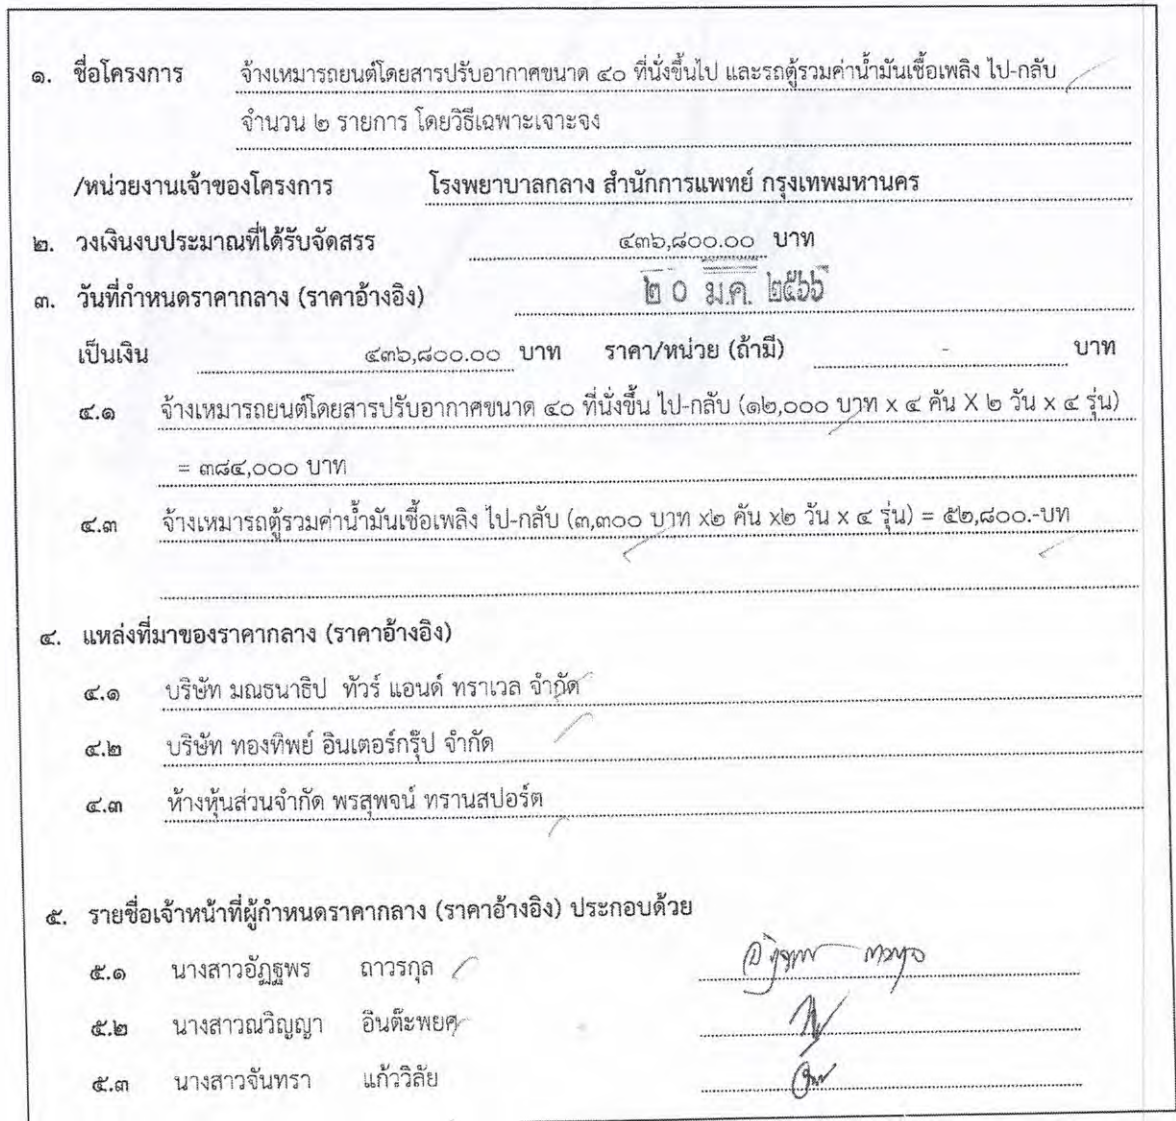 ๑. ชื่อโครงการ จ้างเหมารถยนต์โดยสารปรับอากาศขนาด ๔๐ ที่นั่งขึ้นไป และรถตู้รวมค่าน้ำมันเชื้อเพลิง ไป-กลับ
จำนวน ๒ รายการ โดยวิธีเฉพาะเจาะจง
/หน่วยงานเจ้าของโครงการ โรงพยาบาลกลาง สำนักการแพทย์ กรุงเทพมหานคร
๒. วงเงินงบประมาณที่ได้รับจัดสรร ๔๓๖,๘๐๐.๐๐ บาท
๓. วันที่กำหนดราคากลาง (ราคาอ้างอิง) ๒๐ ม.ค. ๒๕๖๖
เป็นเงิน ๔๓๖,๘๐๐.๐๐ บาท ราคา/หน่วย (ถ้ามี) - บาท
๔.๑ จ้างเหมารถยนต์โดยสารปรับอากาศขนาด ๔๐ ที่นั่งขึ้น ไป-กลับ (๑๒,๐๐๐ บาท x ๔ คัน X ๒ วัน x ๔ รุ่น)
= ๓๘๔,๐๐๐ บาท
๔.๓ จ้างเหมารถตู้รวมค่าน้ำมันเชื้อเพลิง ไป-กลับ (๓,๓๐๐ บาท x๒ คัน x๒ วัน x ๔ รุ่น) = ๕๒,๘๐๐.-บท
๔. แหล่งที่มาของราคากลาง (ราคาอ้างอิง)
๔.๑ บริษัท มณธนาธิป ทัวร์ แอนด์ ทราเวล จำกัด
๔.๒ บริษัท ทองทิพย์ อินเตอร์กรุ๊ป จำกัด
๔.๓ ห้างหุ้นส่วนจำกัด พรสุพจน์ ทรานสปอร์ต
๕. รายชื่อเจ้าหน้าที่ผู้กำหนดราคากลาง (ราคาอ้างอิง) ประกอบด้วย
๕.๑ นางสาวอัฏฐพร ถาวรกุล
๕.๒ นางสาวณวิญญา อินต๊ะพยศ
๕.๓ นางสาวจันทรา แก้ววิลัย